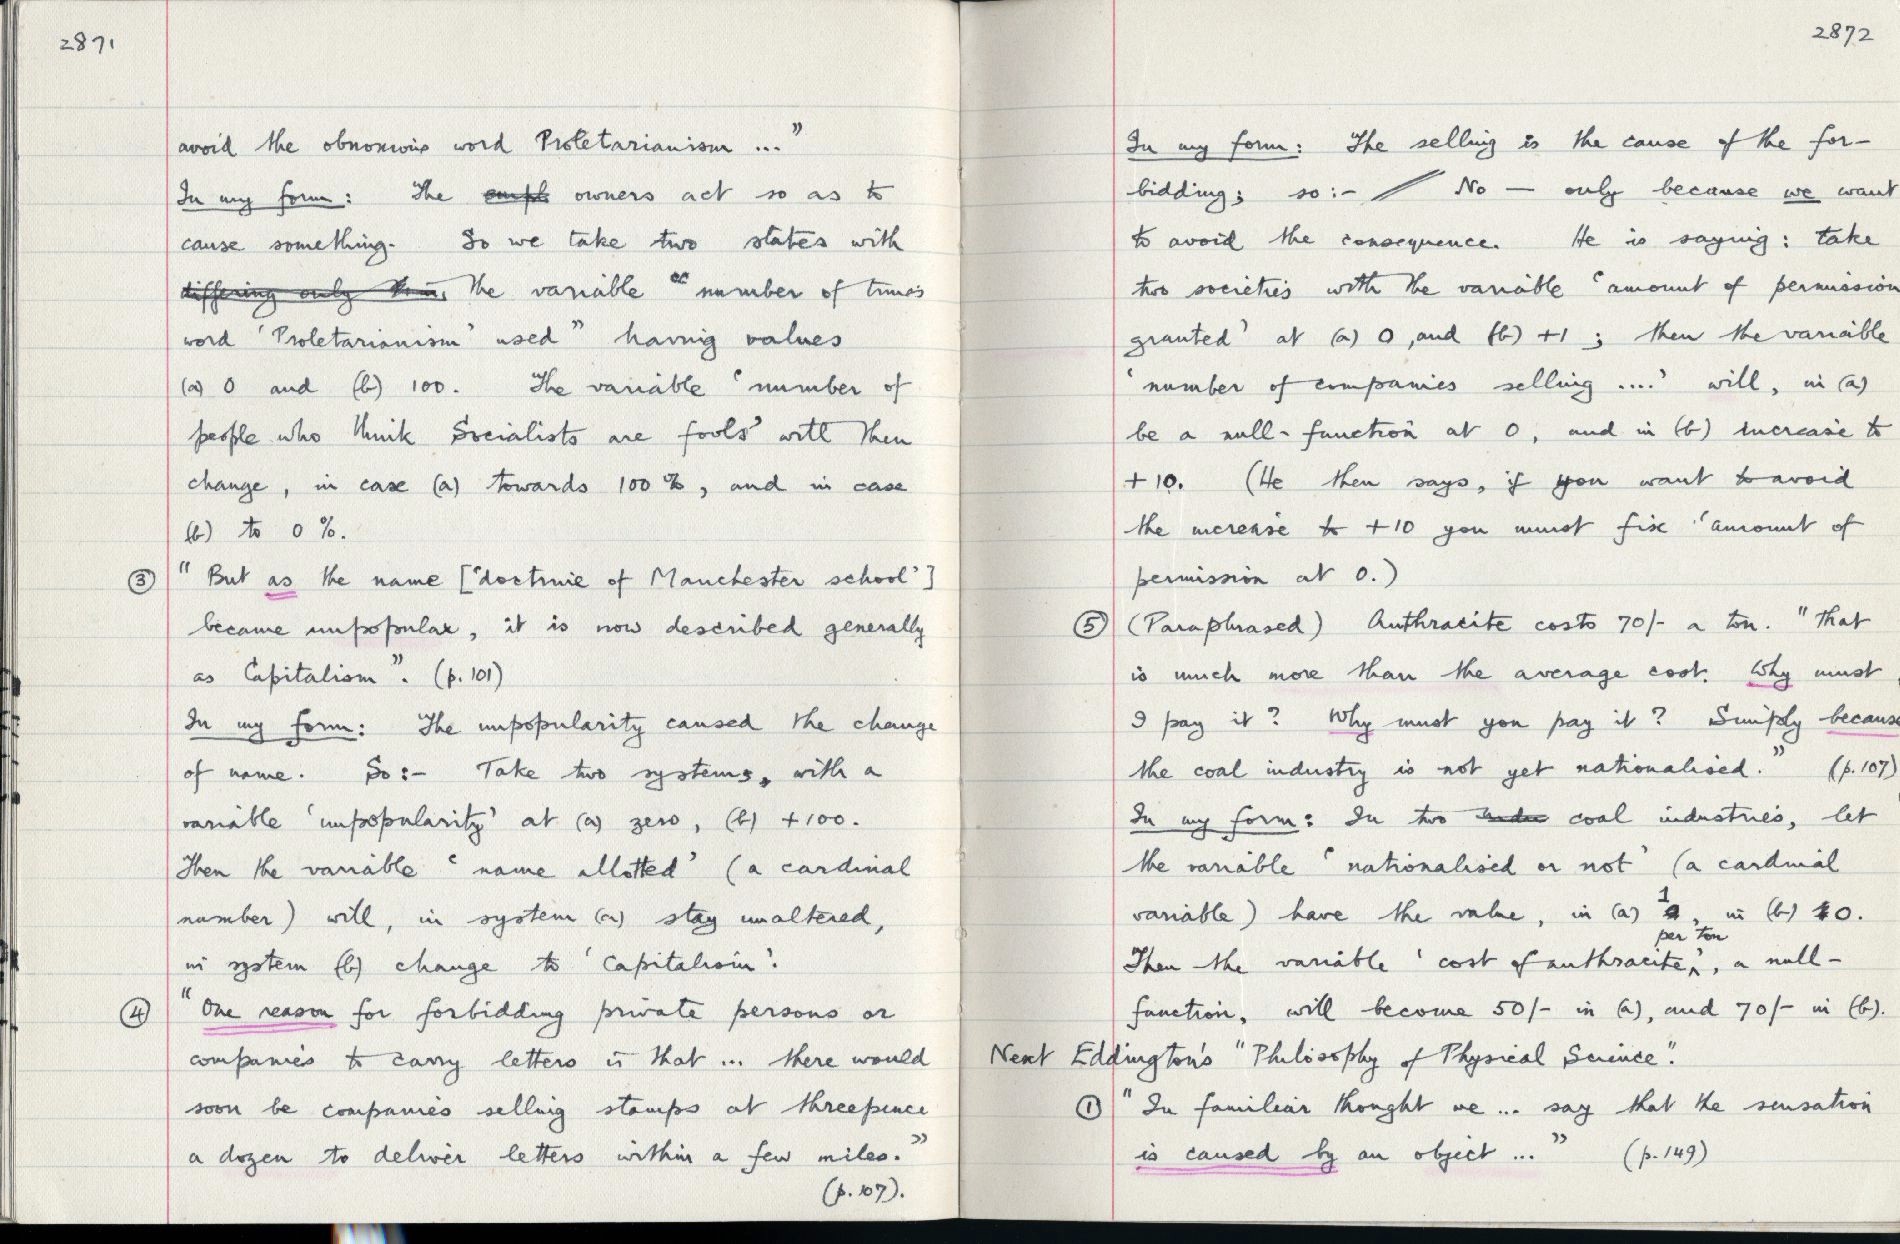 2871
avoid the obnoxious word Proletarianism ..."
In my form: The empl owners act so as to
cause something. So we take two states with
differing only the variable "number of times
word 'Proletarianism' used" having values
(a) 0 and (b) 100. The variable 'number of
people who think Socialists are fools' will then
change, in case (a) towards 100%, and in case
(b) to 0%.
③ "But as the name ['doctrine of Manchester school']
became unpopular, it is now described generally
as Capitalism". (p.101)
In my form: The unpopularity caused the change
of name. So:- Take two systems, with a
variable 'unpopularity' at (a) zero, (b) +100.
Then the variable 'name allotted' (a cardinal
number) will, in system (a) stay unaltered,
in system (b) change to 'Capitalism'.
④ "One reason for forbidding private persons or
companies to carry letters is that ... there would
soon be companies selling stamps at threepence
a dozen to deliver letters within a few miles."
(p.107).
2872
In my form: The selling is the cause of the for-
bidding; so:- // No — only because we want
to avoid the consequence. He is saying: take
two societies with the variable 'amount of permission
granted' at (a) 0, and (b) +1; then the variable
'number of companies selling ....' will, in (a)
be a null-function at 0, and in (b) increase to
+10. (He then says, if you want to avoid
the increase to +10 you must fix 'amount of
permission at 0.)
⑤ (Paraphrased) Anthracite costs 70/- a ton. "That
is much more than the average cost. Why must
I pay it? Why must you pay it? Simply because
the coal industry is not yet nationalised." (p.107)
In my form: In two coal industries, let
the variable 'nationalised or not' (a cardinal
variable) have the value, in (a) 1, in (b) 0.
Then the variable 'cost of anthracite per ton', a null-
function, will become 50/- in (a), and 70/- in (b).
Next Eddington's "Philosophy of Physical Science".
① "In familiar thought we ... say that the sensation
is caused by an object ..." (p.149)